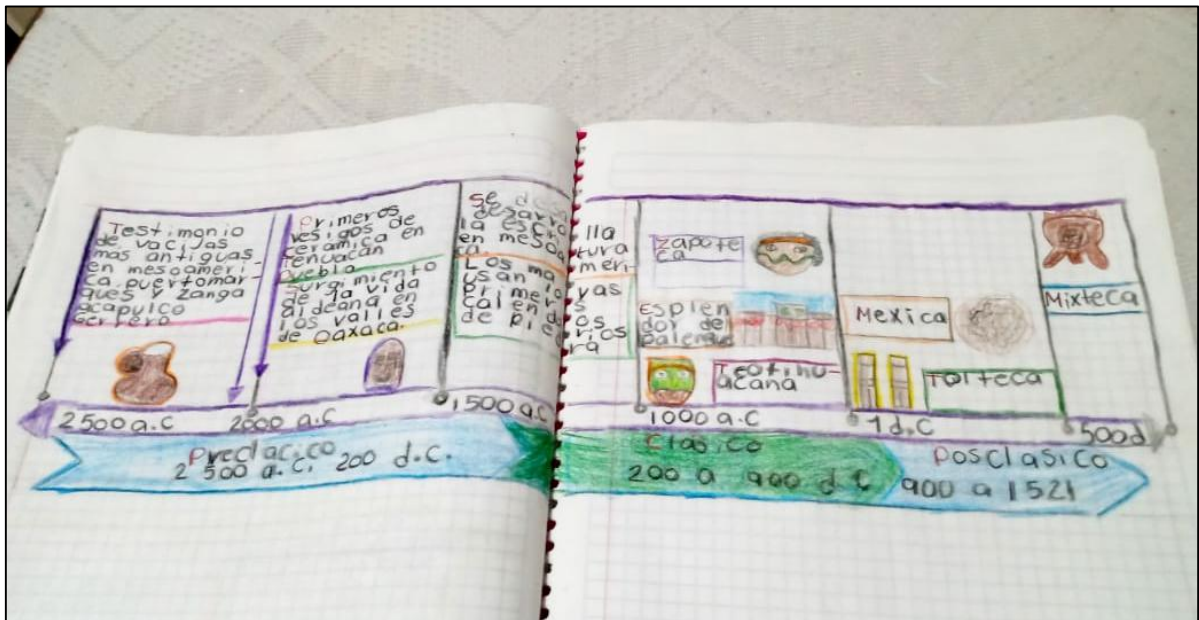 Testimonio
de vacijas
mas antiguas
en mesoameri-
ca puertomar
ques y zanga
acapulco
gerrero
Primeros
vestigos de
ceramica en
Tenuacan
Puebla
Surgimiento
de la vida
aldeana en
los valles
de Oaxaca.
Se desa
desarrolla
la escritura
en mesoameri-
ca
Los mayas
usan los
primeros
calendarios
de piedra
zapote
ca
Esplen
dor de
palenque
Teotihu-
acana
Mexica
Tolteca
Mixteca
2500 a.C
2000 a.C
1500 a.C
1000 a.C
1 d.C
500 d
Preclacico
2 500 a.C. 200 d.C.
Clasico
200 a 900 d C
Posclasico
900 a 1521